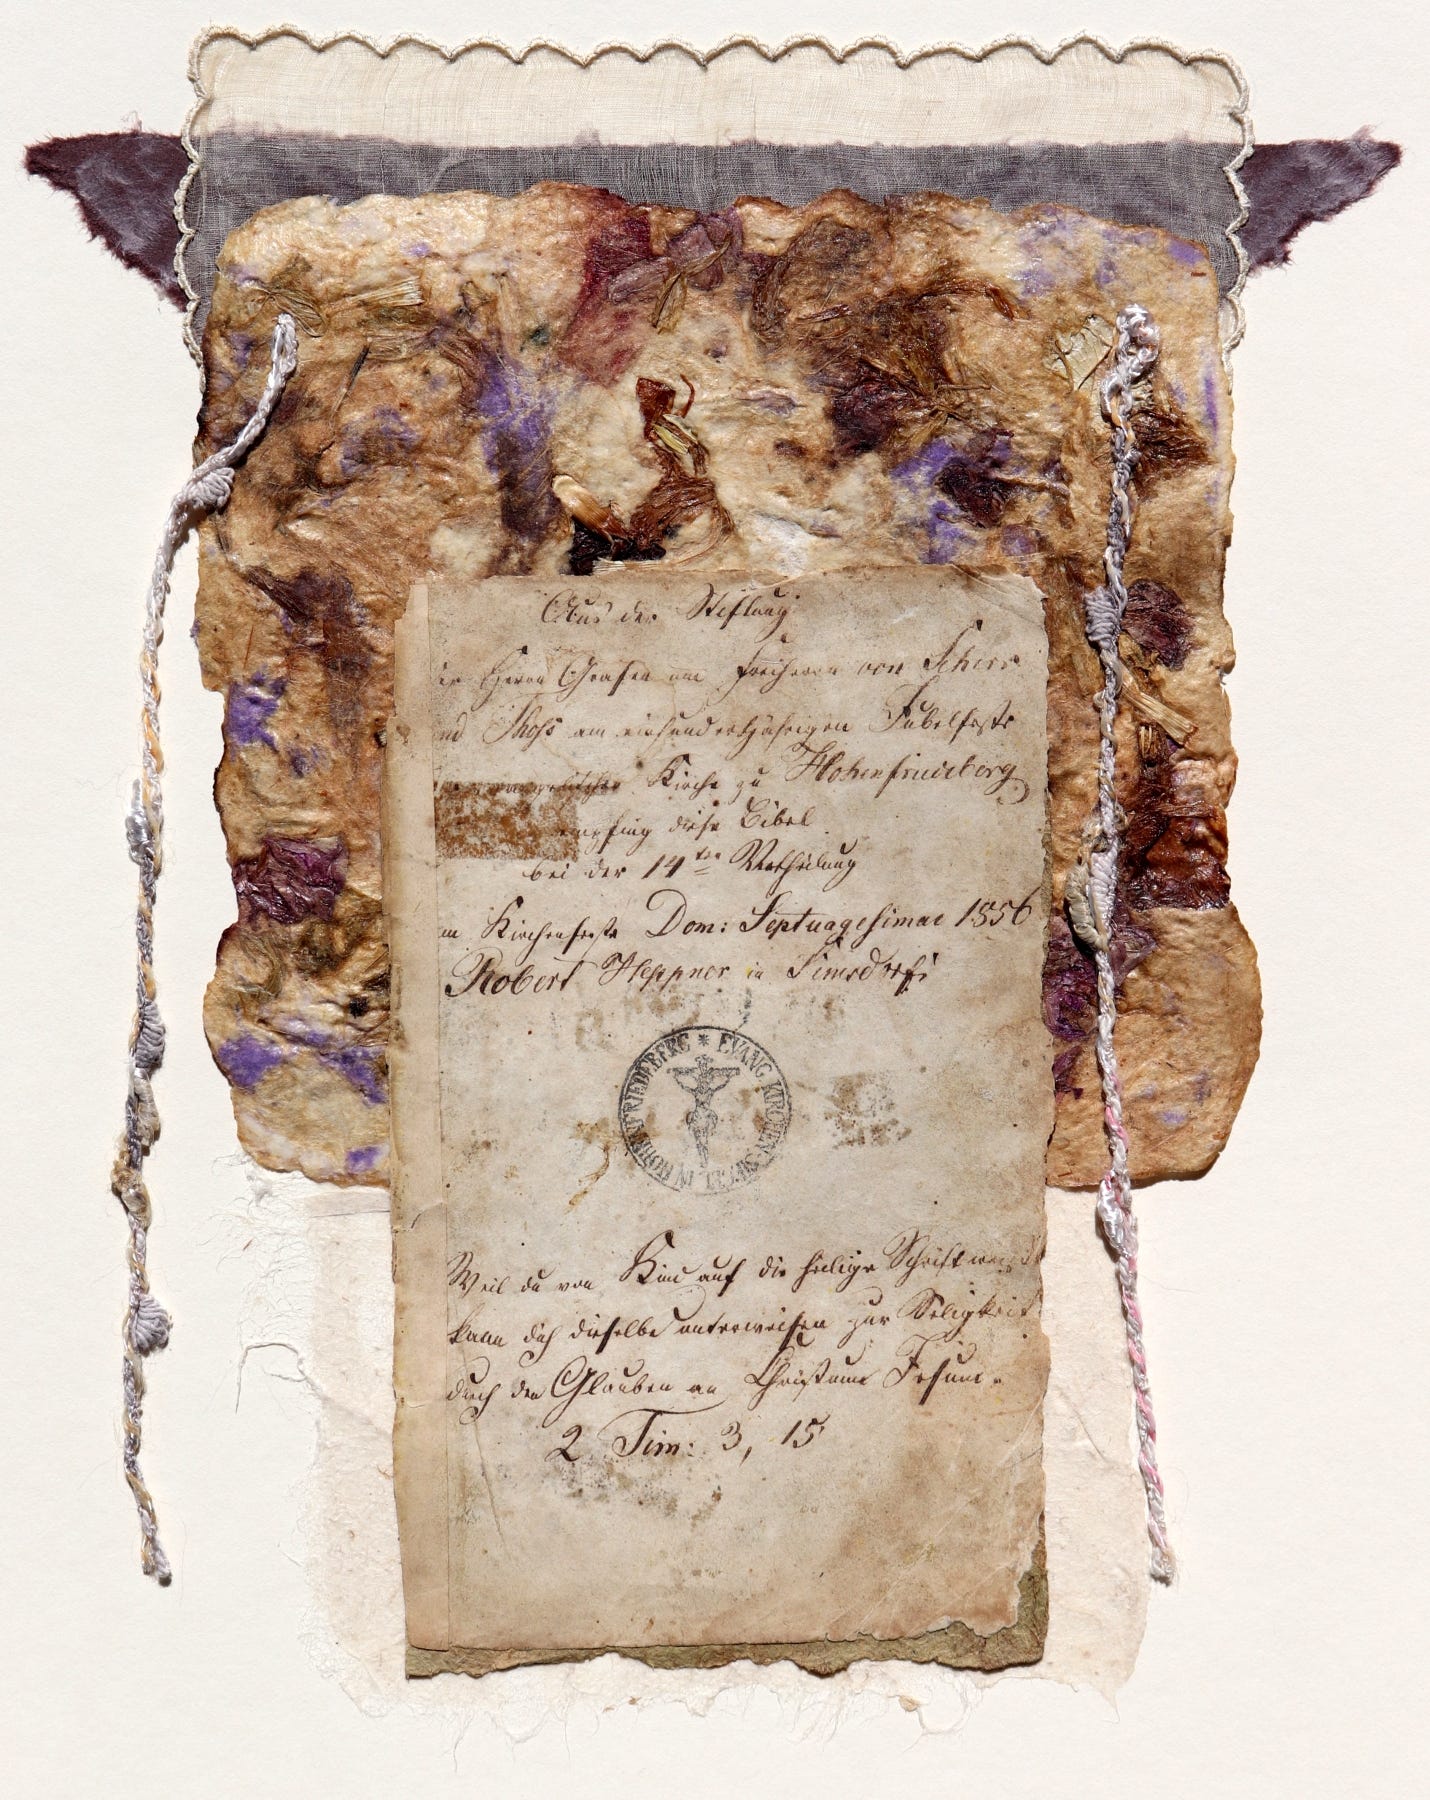 Aus der Stiftung
der Herrn Grafen und Freiherrn von Scherr
und Thoß am einhundertjährigen Jubelfeste
evangelischen Kirche zu Hohenfriedeberg
empfing diese Bibel
bei der 14ten Vertheilung
am Kirchenfeste Dom: Septuagesimae 1856
Robert Heppner in
HOHENFRIEDEBERG * EVANG. KIRCHEN-SIEGEL IN
Weil du von Kind auf die heilige Schrift weißt
kann dich dieselbe unterweisen zur Seligkeit
durch den Glauben an Christum Jesum.
2 Tim: 3, 15